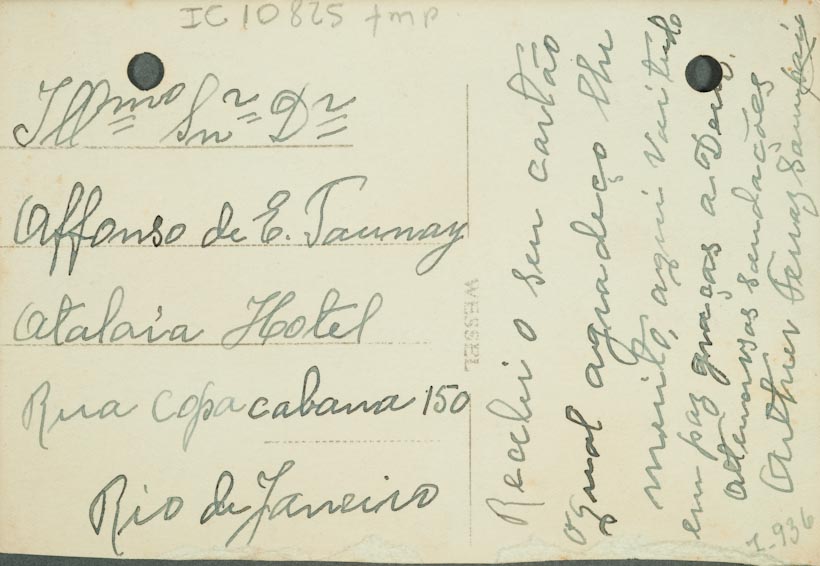 IC 10825 tmp
Illmo Snr Dr
Affonso de E. Taunay
Atalaia Hotel
Rua Copacabana 150
Rio de Janeiro
WESSEL
Recebi o seu cartão
o qual agradeço lhe
muito, aqui vai tudo
em paz graças a Deus.
attenciosas saudações
Arthur Ferraz Sampaio
1-936